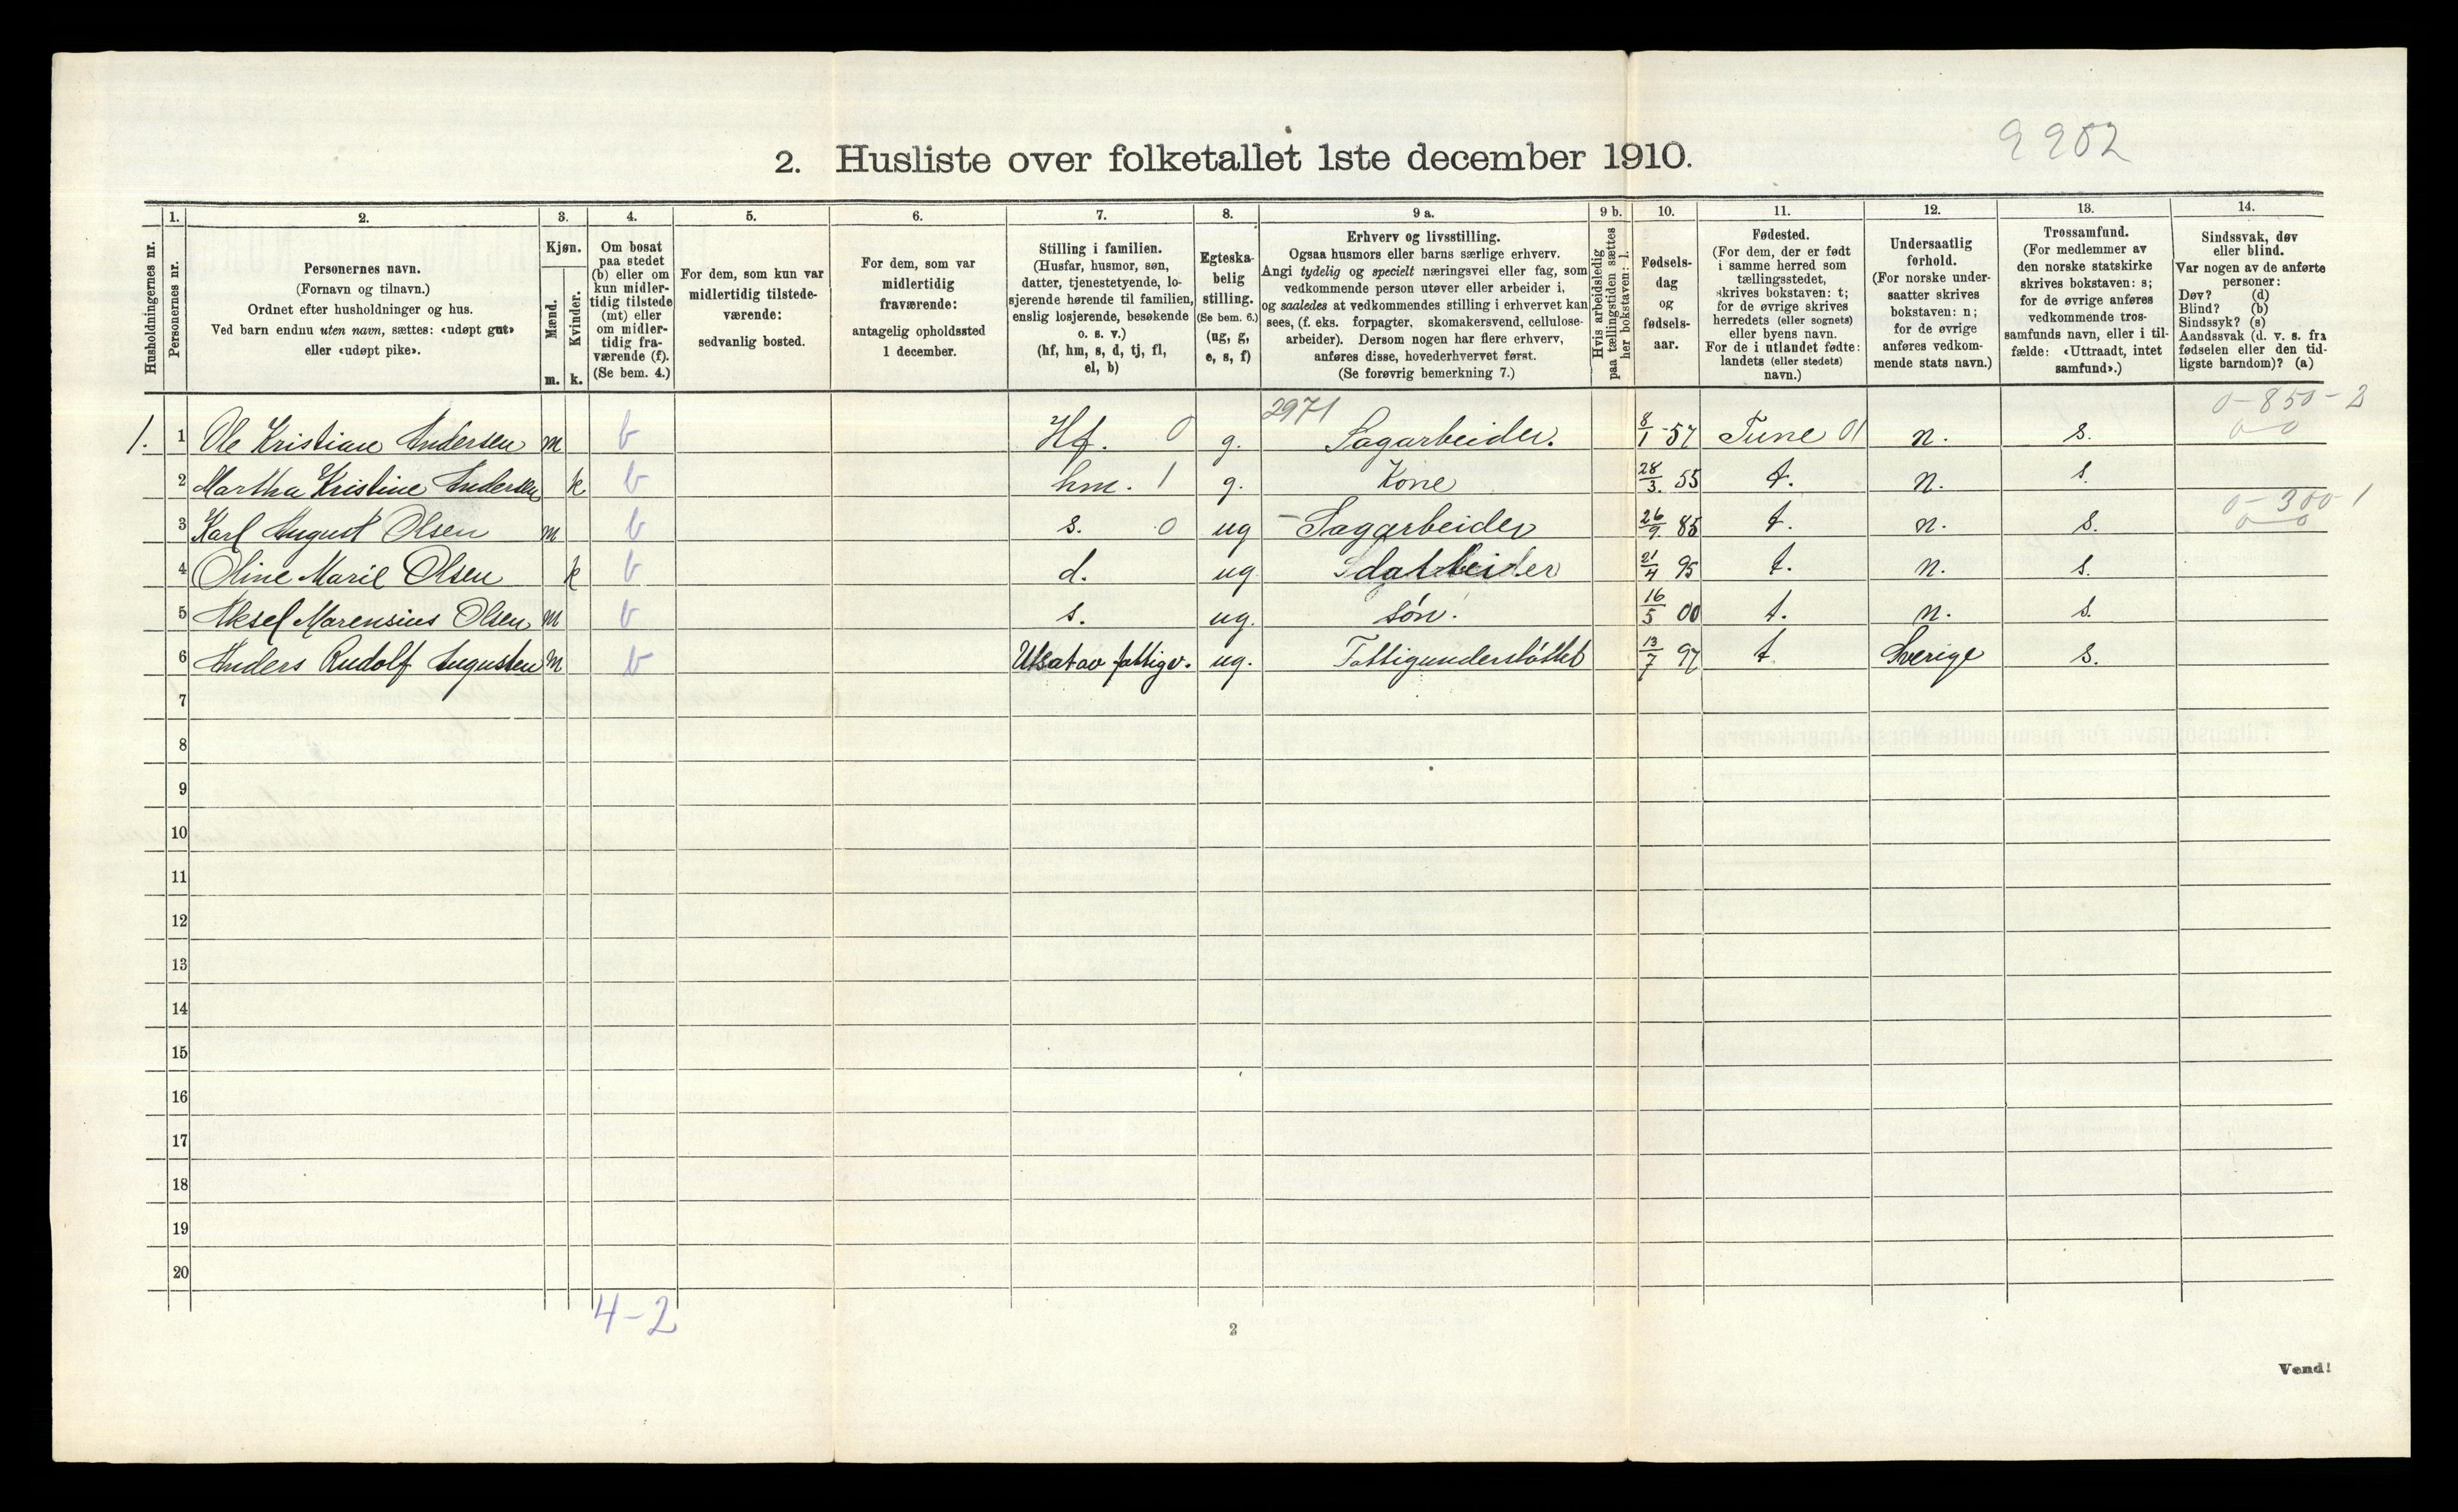 9902
2. Husliste over folketallet 1ste december 1910.
Husholdningernes nr.
1. Personernes nr.
2. Personernes navn.
(Fornavn og tilnavn.)
Ordnet efter husholdninger og hus.
Ved barn endnu uten navn, sættes: «udøpt gut»
eller «udøpt pike».
3. Kjøn.
Mænd. m.
Kvinder. k.
4. Om bosat
paa stedet
(b) eller om
kun midler-
tidig tilstede
(mt) eller
om midler-
tidig fra-
værende (f).
(Se bem. 4.)
5. For dem, som kun var
midlertidig tilstede-
værende:
sedvanlig bosted.
6. For dem, som var
midlertidig
fraværende:
antagelig opholdssted
1 december.
7. Stilling i familien.
(Husfar, husmor, søn,
datter, tjenestetyende, lo-
sjerende hørende til familien,
enslig losjerende, besøkende
o. s. v.)
(hf, hm, s, d, tj, fl,
el, b)
8. Egteska-
belig
stilling.
(Se bem. 6.)
(ug, g,
e, s, f)
9 a. Erhverv og livsstilling.
Ogsaa husmors eller barns særlige erhverv.
Angi tydelig og specielt næringsvei eller fag, som
vedkommende person utøver eller arbeider i,
og saaledes at vedkommendes stilling i erhvervet kan
sees, (f. eks. forpagter, skomakersvend, cellulose-
arbeider). Dersom nogen har flere erhverv,
anføres disse, hovederhvervet først.
(Se forøvrig bemerkning 7.)
9 b. Hvis arbeidsledig
paa tællingstiden sættes
her bokstaven: l.
10. Fødsels-
dag
og
fødsels-
aar.
11. Fødested.
(For dem, der er født
i samme herred som
tællingsstedet,
skrives bokstaven: t;
for de øvrige skrives
herredets (eller sognets)
eller byens navn.
For de i utlandet fødte:
landets (eller stedets)
navn.)
12. Undersaatlig
forhold.
(For norske under-
saatter skrives
bokstaven: n;
for de øvrige
anføres vedkom-
mende stats navn.)
13. Trossamfund.
(For medlemmer av
den norske statskirke
skrives bokstaven: s;
for de øvrige anføres
vedkommende tros-
samfunds navn, eller i til-
fælde: «Uttraadt, intet
samfund».)
14. Sindssvak, døv
eller blind.
Var nogen av de anførte
personer:
Døv? (d)
Blind? (b)
Sindssyk? (s)
Aandssvak (d. v. s. fra
fødselen eller den tid-
ligste barndom)? (a)
2971 0-850-2
1. 1 Ole Kristian Andersen m b Hf. 0 g. Sagarbeider. 8/1 -57 Tune 01 n. s. 0-0
2 Martha Kristine Andersen k b hm. 1 g. Kone 28/3. 55 t. n. s.
0-300-1
3 Karl August Olsen m b s. 0 ug Sagarbeider 26/9. 85 t. n. s. 0-0
4 Oline Marie Olsen k b d. ug 21/4 95 t. n. s.
5 Aksel Marensius Olsen m b s. ug. søn. 16/5 00 t. n. s.
6 Anders Rudolf Augusten m b Utsat av fattigv. ug. Fattigunderstøttet 13/7 97 t Sverige s.
7
8
9
10
11
12
13
14
15
16
17
18
19
20
4-2
2
Vend!